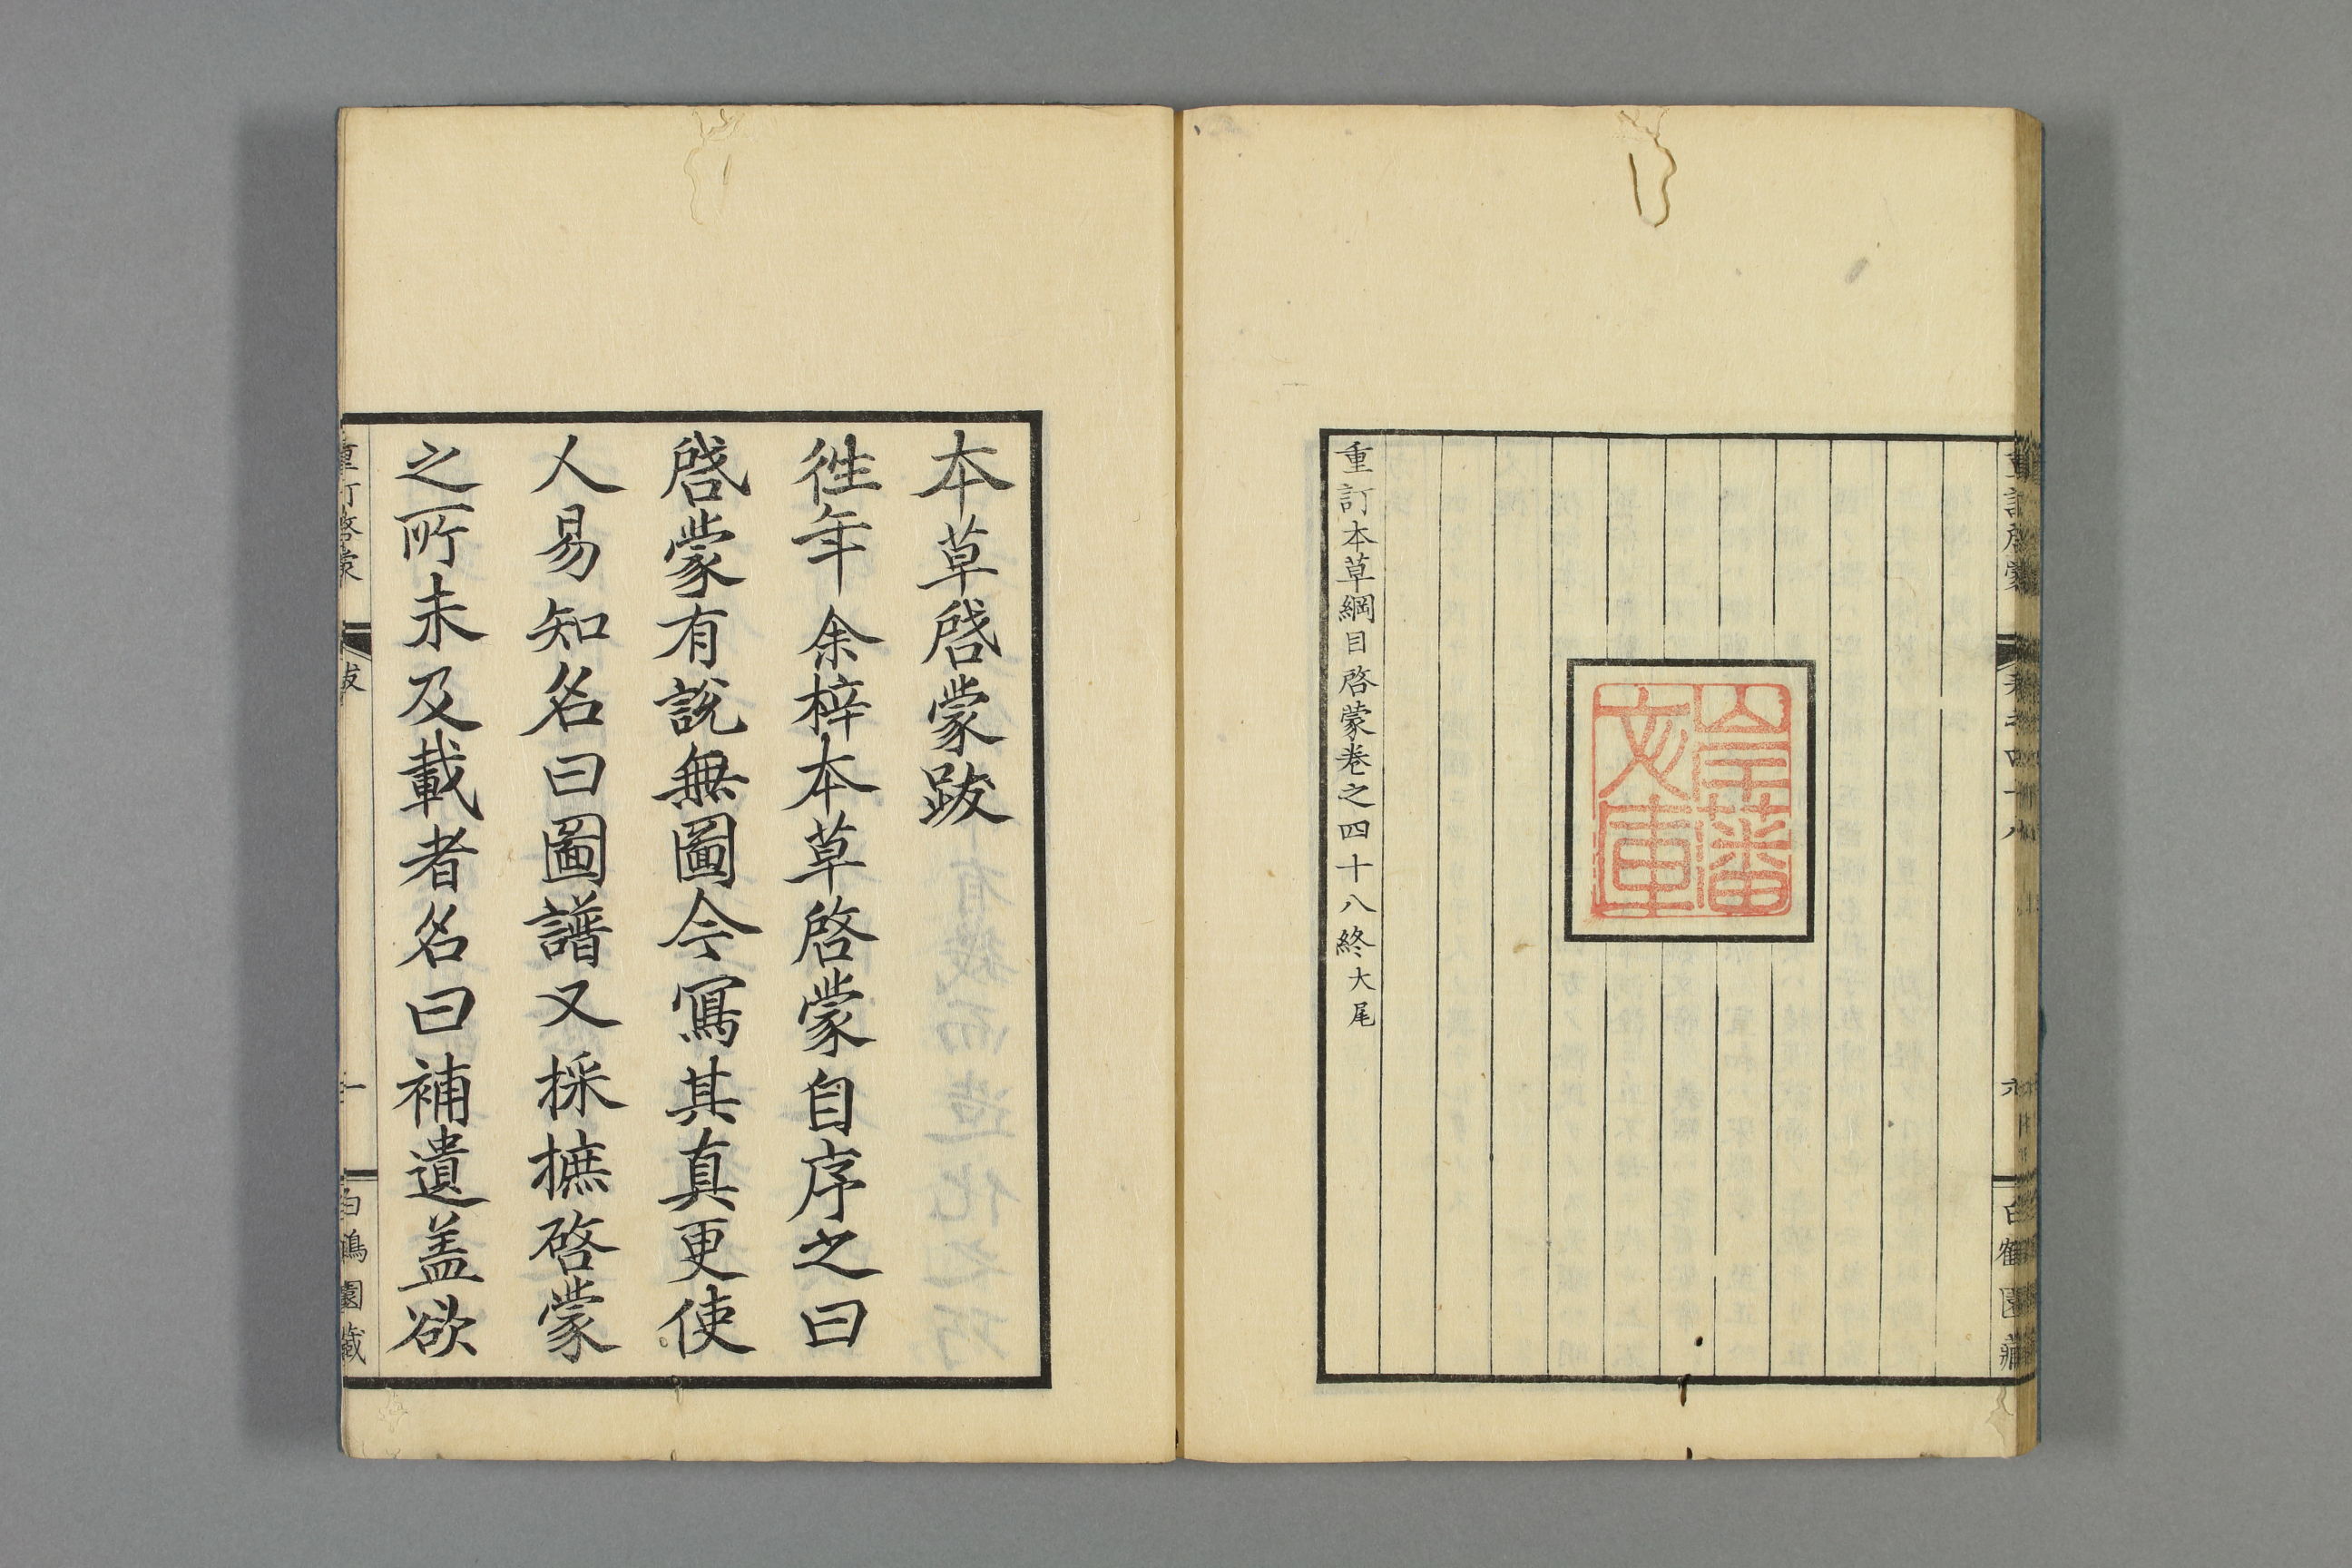 重訂本草綱目啓蒙卷之四十八終大尾
岸藩
文庫
白鶴園藏
本草啓蒙跋
徃年余梓本草啓蒙自序之曰
啓蒙有説無圖今寫其真更使
人易知名曰圖譜又採摭啓蒙
之所未及載者名曰補遺盖欲
重訂啓蒙
跋
一
白鶴園藏